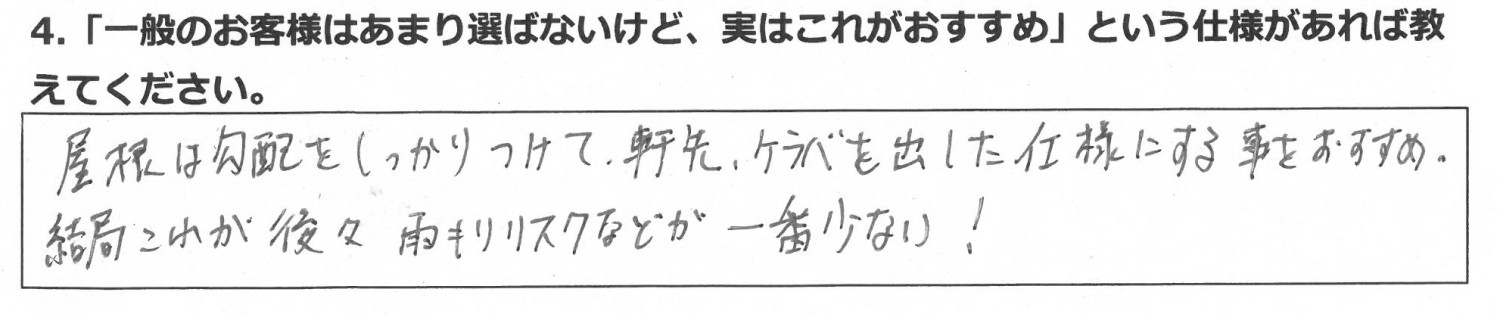 4.「一般のお客様はあまり選ばないけど、実はこれがおすすめ」という仕様があれば教
えてください。
屋根は勾配をしっかりつけて、軒先、ケラバを出した仕様にする事をおすすめ。
結局これが後々雨もりリスクなどが一番少ない!